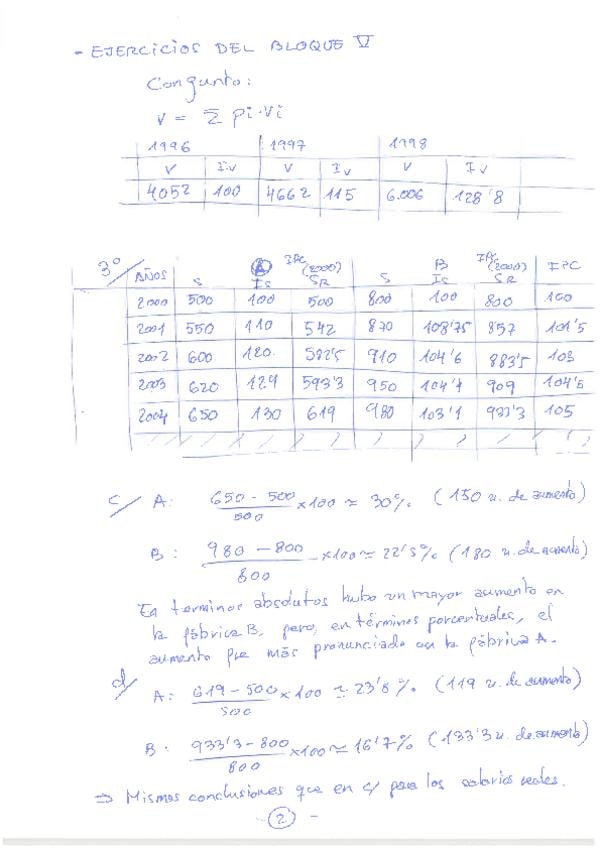 - EJERCICIOS DEL BLOQUE V
Conjunto:
V = Σ pi·vi
1996 1997 1998
V Iv V Iv V Iv
4052 100 4662 115 6.006 128'8
3º/ AÑOS S A Is IPC (2000) SR S B Is IPC (2000) SR IPC
2000 500 100 500 800 100 800 100
2001 550 110 542 870 108'75 857 101'5
2002 600 120 582'5 910 104'6 883'5 103
2003 620 124 593'3 950 104'4 909 104'5
2004 650 130 619 980 103'1 933'3 105
c/ A: 650 - 500 / 500 x100 ≃ 30% (150 u. de aumento)
B: 980 - 800 / 800 x100 ≃ 22'5% (180 u. de aumento)
En terminos absolutos hubo un mayor aumento en
la fábrica B, pero, en términos porcentuales, el
aumento fue más pronunciado en la fábrica A.
d/ A: 619 - 500 / 500 x100 ≃ 23'8% (119 u. de aumento)
B: 933'3 - 800 / 800 x100 ≃ 16'7% (133'3 u. de aumento)
⇒ Mismas conclusiones que en c/ para los salarios reales.
- 2 -